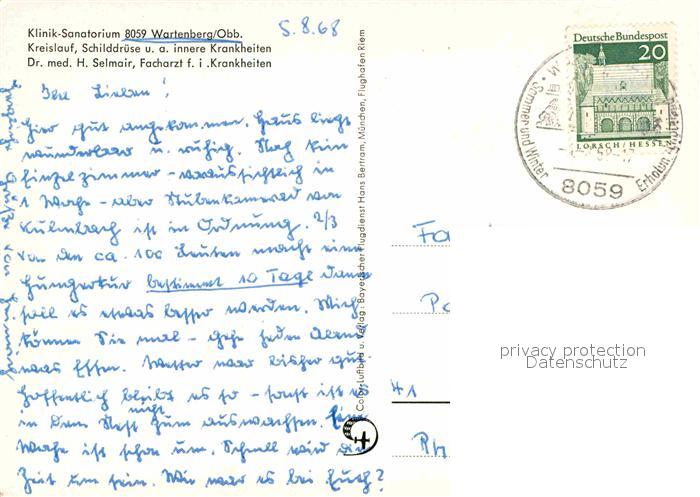 5.8.68
Klinik-Sanatorium 8059 Wartenberg/Obb.
Kreislauf, Schilddrüse u. a. innere Krankheiten
Dr. med. H. Selmair, Facharzt f. i .Krankheiten
Ihr Lieben!
Hier gut angekommen. Haus liegt
wunderbar u. ruhig. Noch kein
Einzelzimmer - voraussichtlich in
1 Woche - aber Stubenkamerad von
Kulmbach ist in Ordnung. 2/3
von den ca. 100 Leuten macht eine
Hungerkur bestimmt 10 Tage dann
soll es etwas besser werden. Mich
können Sie mal - gehe jeden Abend
was Essen. Wetter war bisher gut
hoffentlich bleibt es so - sonst ist es
in dem Nest zum auswachsen.
nicht
Woche ist schon um. Schnell wird die
Zeit um sein. Wie war es bei Euch?
Grüße von
Color-Luftbild u. Verlag: Bayerischer Flugdienst Hans Bertram, München, Flughafen Riem
Deutsche Bundespost
20
LORSCH/HESSEN
Sommer und Winter
Erholung
8059
41
privacy protection
Datenschutz